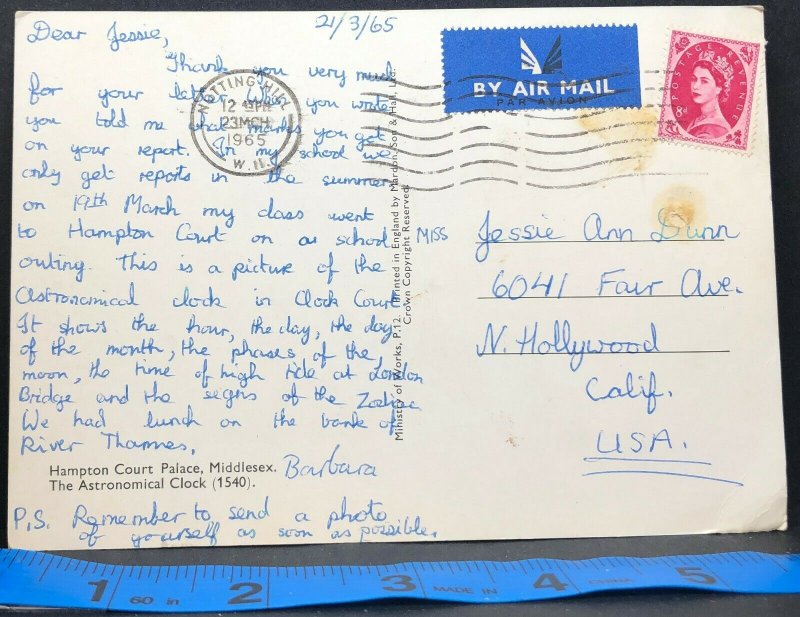 21/3/65
Dear Jessie,
Thank you very much
for your letter. When you wrote
you told me what marks you get
on your report. In my school we
only get reports in the summer
on 19th March my class went
to Hampton Court on a school
outing. This is a picture of the
Astronomical clock in Clock Court.
It shows the hour, the day, the day
of the month, the phases of the
moon, the time of high tide at London
Bridge and the signs of the Zodiac
We had lunch on the bank of
River Thames.
Barbara
Hampton Court Palace, Middlesex.
The Astronomical Clock (1540).
P.S. Remember to send a photo
of yourself as soon as possible.
NOTTING HILL
12 PM
23 MCH
1965
W.11.
BY AIR MAIL
PAR AVION
POSTAGE REVENUE
8D
Ministry of Works, P.12. Printed in England by Mardon, Son & Hall, Ltd.
Crown Copyright Reserved.
MISS Jessie Ann Dunn
6041 Fair Ave.
N. Hollywood
Calif.
USA.
1 2 3 4 5
60 in
MADE IN CHINA